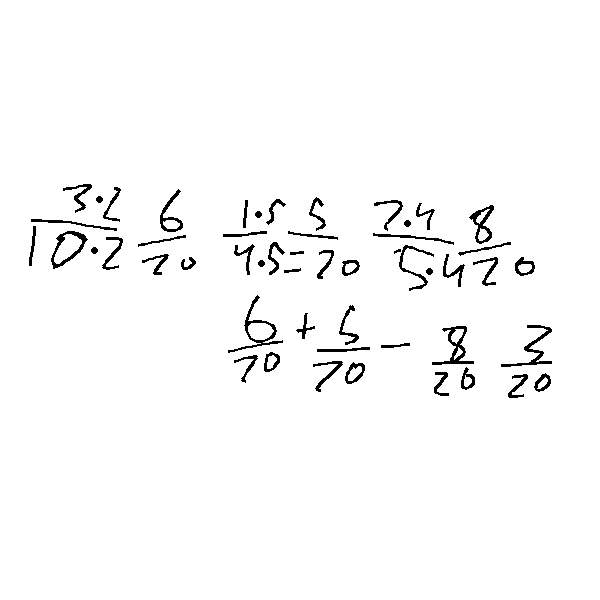 3·2/10·2 6/20 1·5/4·5=5/20 2·4/5·4 8/20
6/20+5/20-8/20 3/20